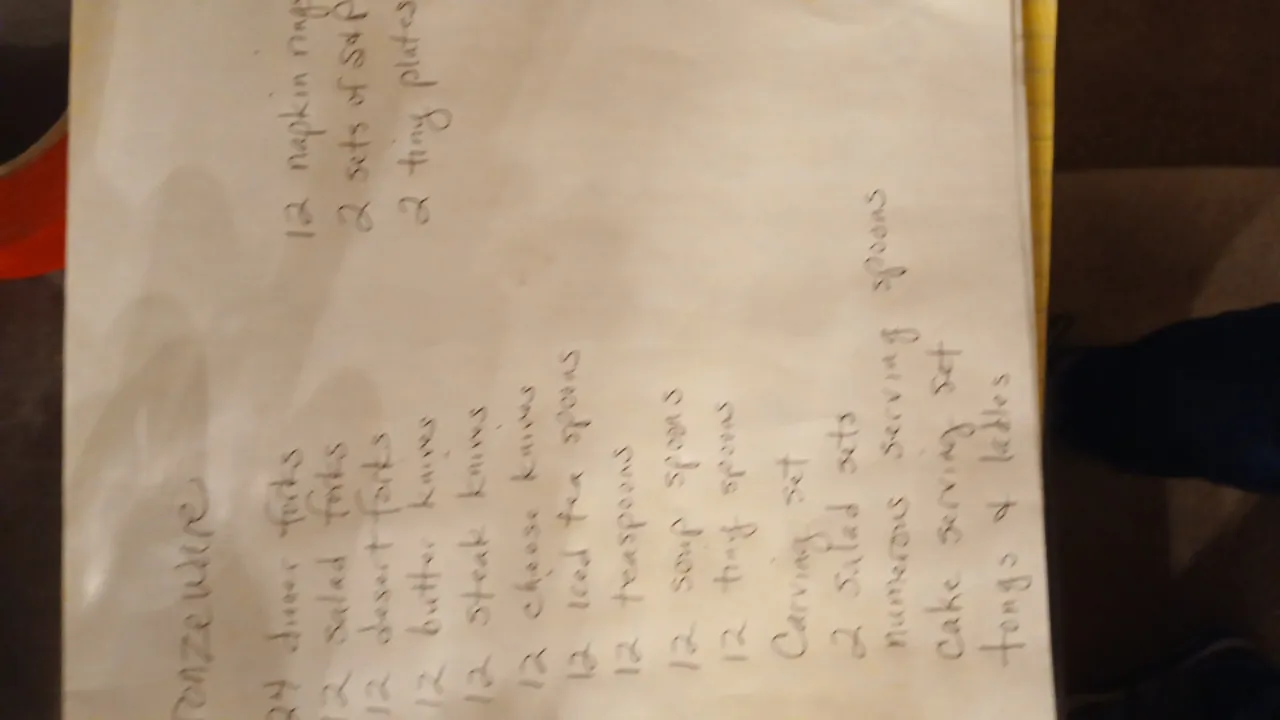 ronzewire
24 dinner forks
12 salad forks
12 desert forks
12 butter knives
12 steak knives
12 cheese knives
12 iced tea spoons
12 teaspoons
12 soup spoons
12 tiny spoons
Carving set
2 salad sets
numerous serving spoons
Cake serving set
tongs & ladles
12 napkin rings
2 sets of S&P
2 tiny plates